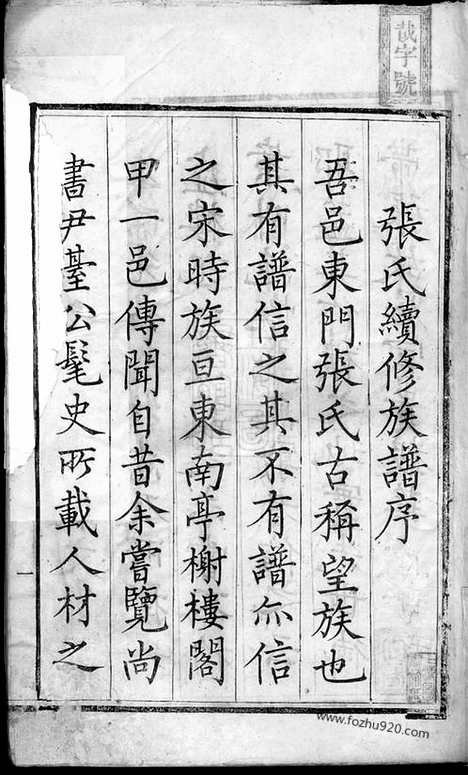 張氏續修族譜序
吾邑東門張氏古稱望族也
其有譜信之其不有譜亦信
之宋時族亘東南亭榭樓閣
甲一邑傳聞自昔余嘗覽尚
書尹臺公髦史所載人材之
一
㦲字號
www.fozhu920.com